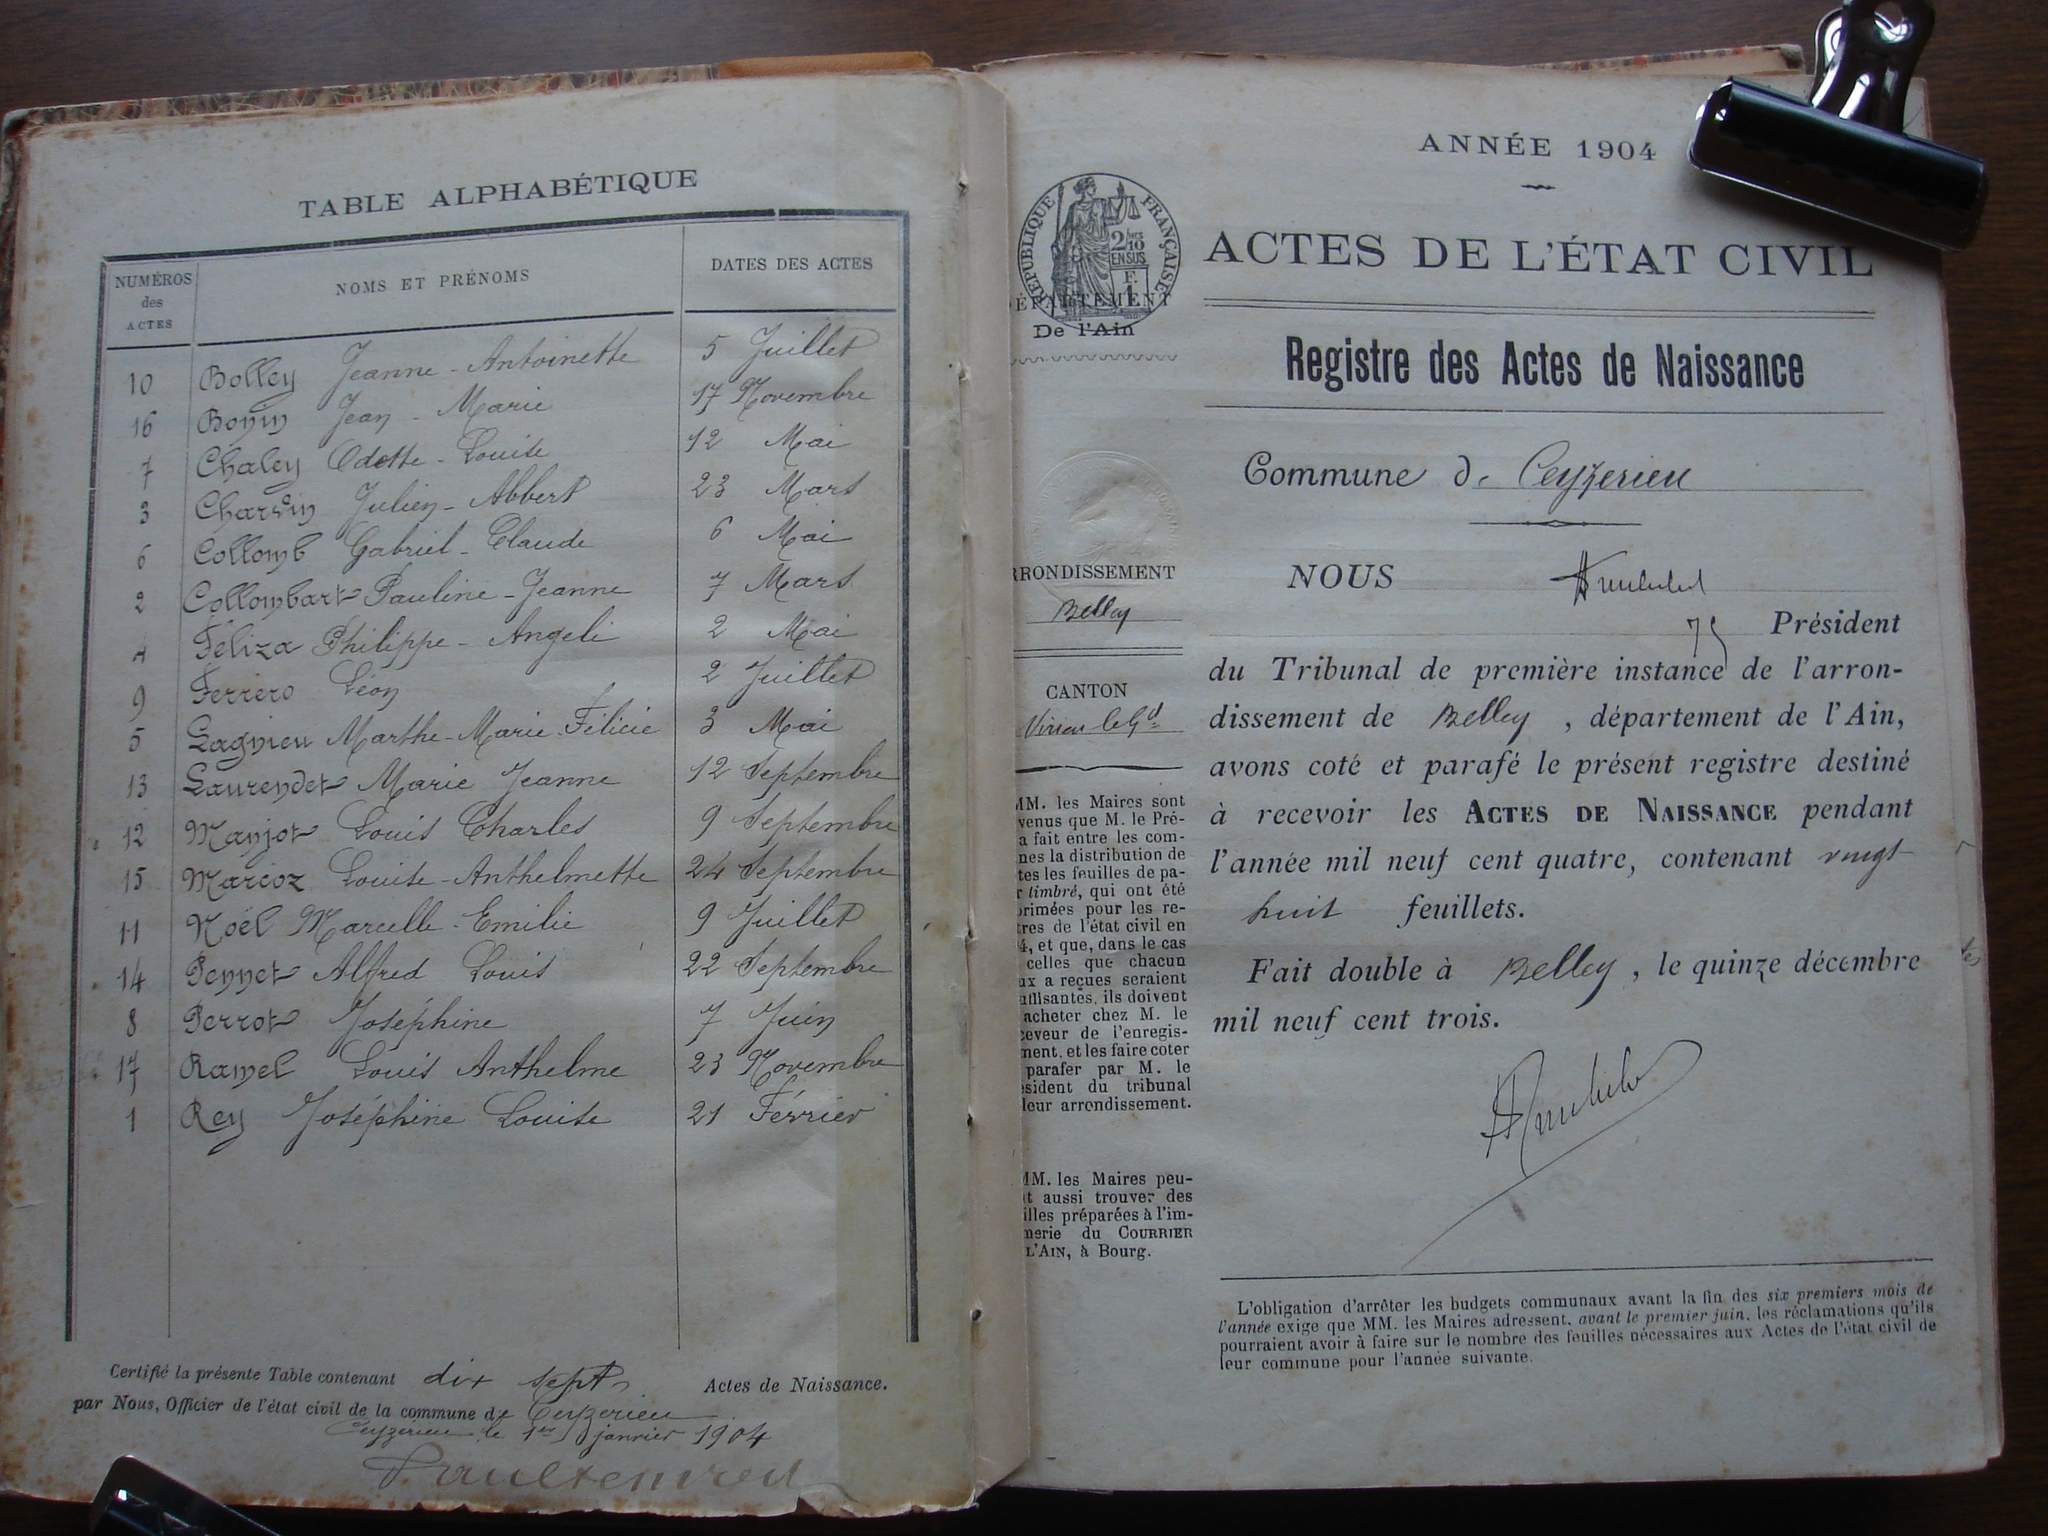 TABLE ALPHABÉTIQUE
NUMÉROS des ACTES NOMS ET PRÉNOMS DATES DES ACTES
10 Bolley Jeanne - Antoinette 5 Juillet
16 Bonin Jean - Marie 17 Novembre
7 Chaley Odette - Louise 12 Mai
3 Charvin Julien - Albert 23 Mars
6 Collomb Gabriel - Claude 6 Mai
2 Collombart Pauline - Jeanne 7 Mars
4 Féliza Philippe - Angeli 2 Mai
9 Ferrero Léon 2 Juillet
5 Lagnieu Marthe - Marie - Félicie 3 Mai
13 Laurendet Marie Jeanne 12 Septembre
12 Manjot Louis Charles 9 Septembre
15 Marcoz Louise - Anthelmette 24 Septembre
11 Noël Marcelle - Emilie 9 Juillet
14 Pennet Alfred Louis 22 Septembre
8 Perrot Joséphine 7 Juin
17 Ramel Louis Anthelme 23 Novembre
1 Rey Joséphine Louise 21 Février
Certifié la présente Table contenant dix sept Actes de Naissance.
par Nous, Officier de l'état civil de la commune de Ceyzerieu
Ceyzerieu le 1er janvier 1904
ANNÉE 1904
RÉPUBLIQUE FRANÇAISE
2/10 EN SUS
ACTES DE L'ÉTAT CIVIL
DÉPARTEMENT
De l'Ain
Registre des Actes de Naissance
Commune de Ceyzerieu
RRONDISSEMENT
Belley
NOUS
Président
du Tribunal de première instance de l'arron-
dissement de Belley, département de l'Ain,
avons coté et parafé le présent registre destiné
à recevoir les ACTES DE NAISSANCE pendant
l'année mil neuf cent quatre, contenant vingt
huit feuillets.
Fait double à Belley, le quinze décembre
mil neuf cent trois.
CANTON
Virieu le Gd
MM. les Maires sont
venus que M. le Pré-
a fait entre les com-
nes la distribution de
tes les feuilles de pa-
r timbré, qui ont été
primées pour les re-
tres de l'état civil en
4, et que, dans le cas
celles que chacun
ux a reçues seraient
uffisantes, ils doivent
acheter chez M. le
ceveur de l'enregis-
ment, et les faire coter
parafer par M. le
ésident du tribunal
leur arrondissement.
MM. les Maires peu-
t aussi trouver des
illes préparées à l'im-
merie du COURRIER
L'AIN, à Bourg.
L'obligation d'arrêter les budgets communaux avant la fin des six premiers mois de
l'année exige que MM. les Maires adressent, avant le premier juin, les réclamations qu'ils
pourraient avoir à faire sur le nombre des feuilles nécessaires aux Actes de l'état civil de
leur commune pour l'année suivante.